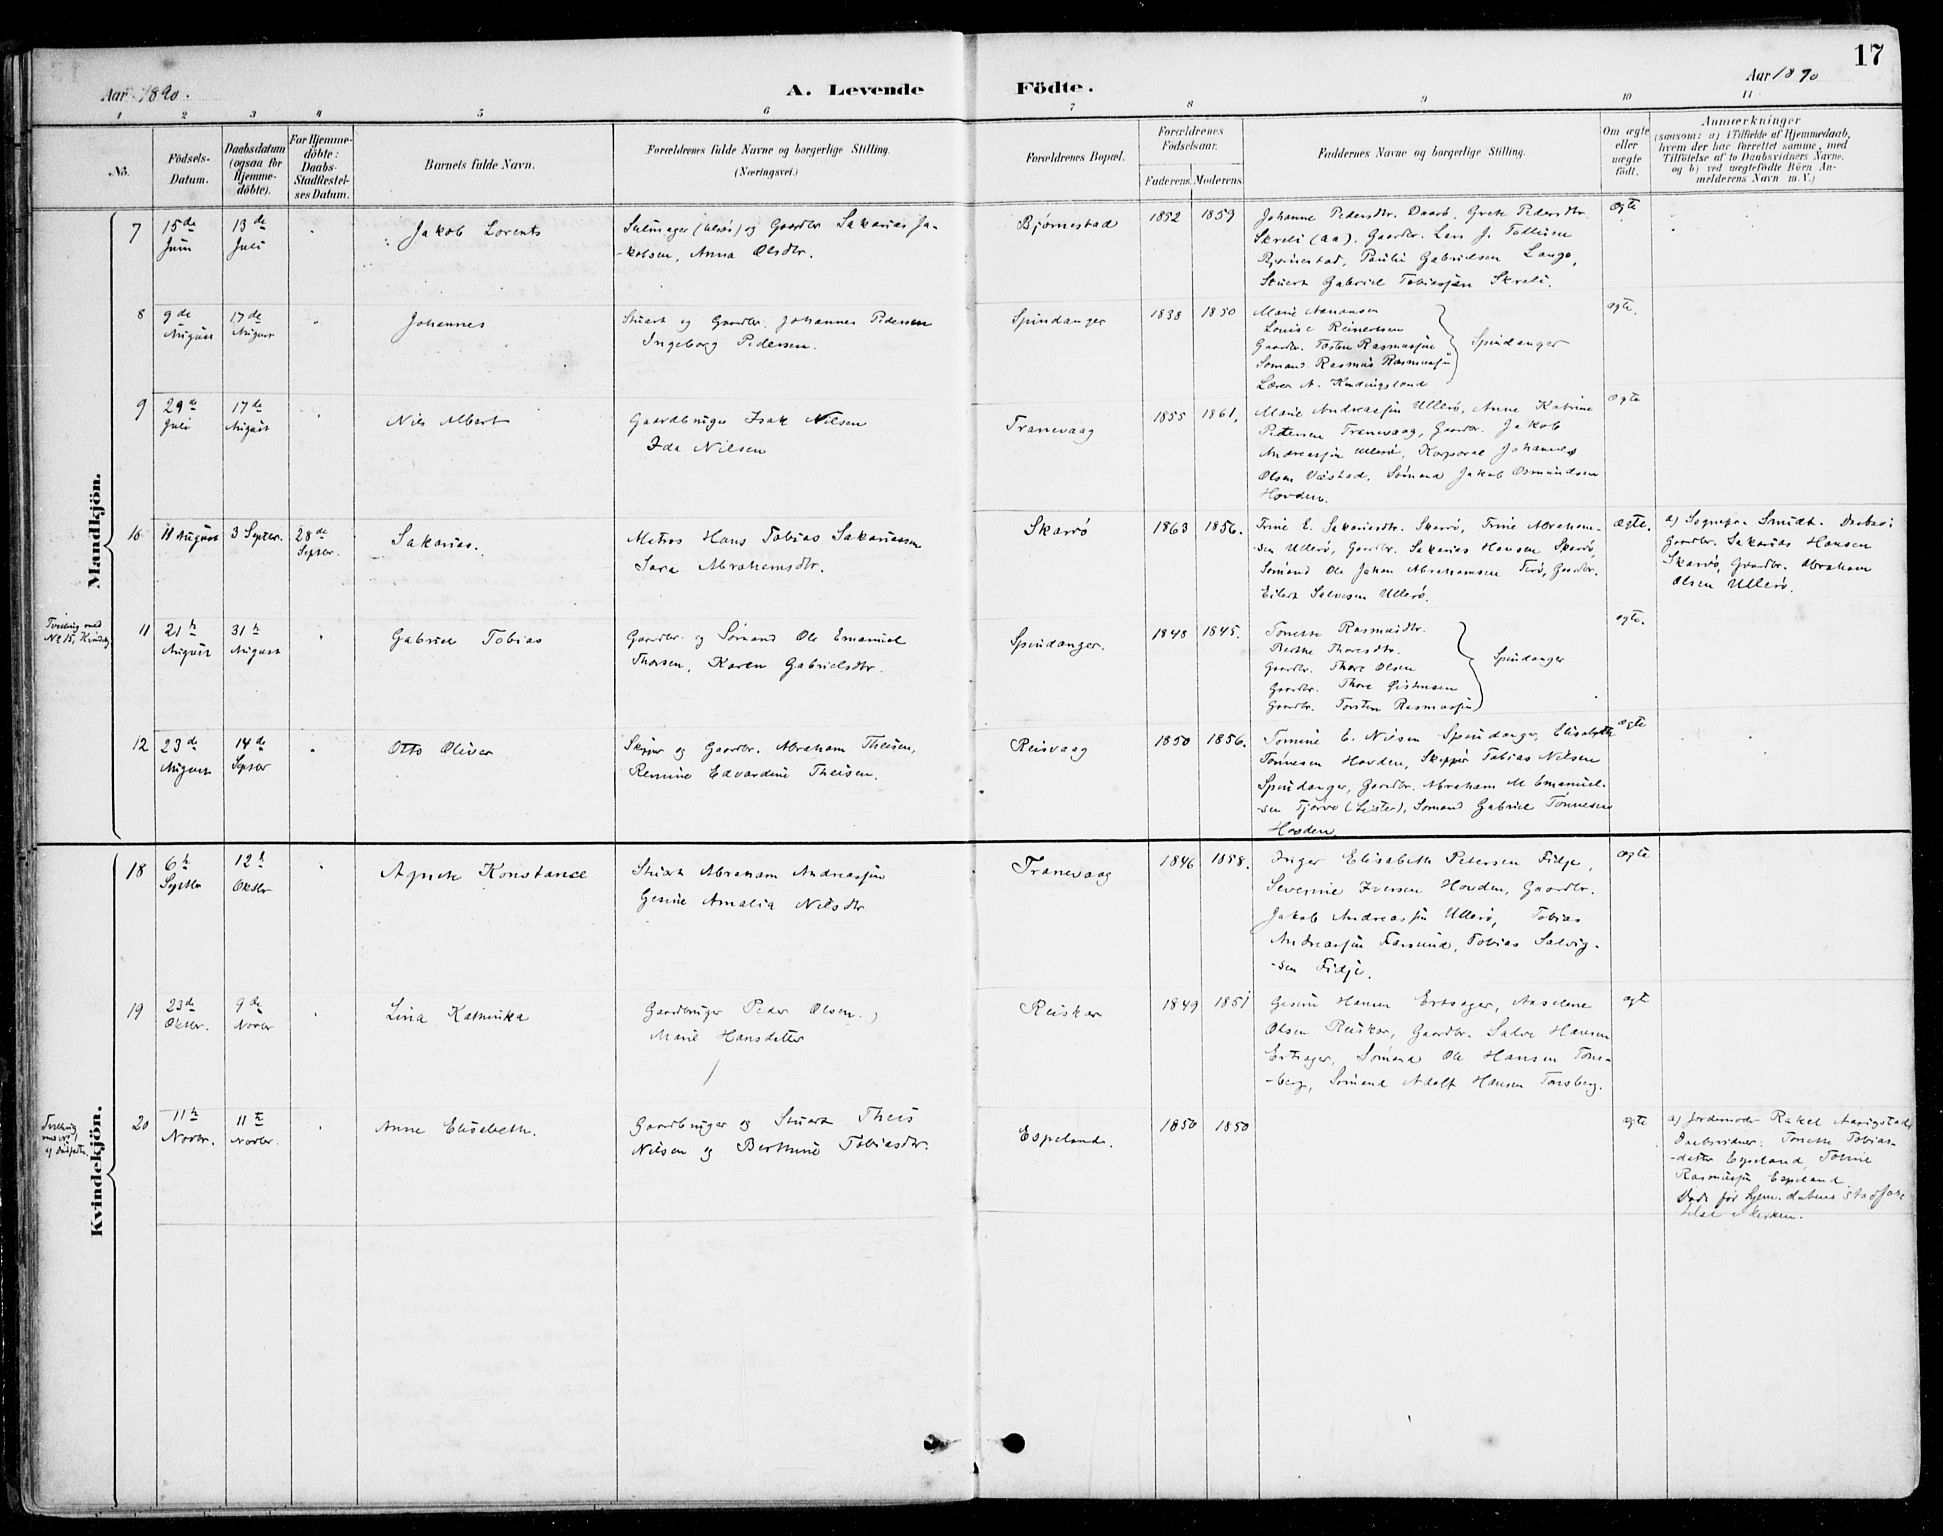 17
Aar 1890.
A. Levende Födte.
Aar 1890
1 2 3 4 5 6 7 8 9 10 11
No.
Födsels-Datum.
Daabsdatum (ogsaa for Hjemme-döbte).
For Hjemme-döbte: Daabs-Stadfæstel-ses Datum.
Barnets fulde Navn.
Forældrenes fulde Navne og borgerlige Stilling. (Næringsvei.)
Forældrenes Bopæl.
Forældrenes Födselsaar.
Faderens. Moderens.
Faddernes Navne og borgerlige Stilling.
Om ægte eller uægte födt.
Anmærkninger
(saasom: a) i Tilfælde af Hjemmedaab,
hvem der har forrettet samme, med
Tilföielse af to Daabsvidners Navne.
og b) ved uægtefödte Börn An-
melderens Navn m. V.)
Mandkjön.
7 15de Juni 13de Juli Jakob Lorents
og Gaardbr. Sakarias Ja-
-kobsen, Anna Olsdtr.
Bjørnestad 1852 1859
Johanne Pedersdtr. Daarø, Grete Pedersdtr.
Skreli (aa). Gaardbr. Lars J. Tollisen
Bjørnestad, Paulu Gabrielsen Lange,
Stuert Gabriel Tobiassen Skreli.
ægte
8 9de August 17de August Johannes
Stuert og Gaardbr. Johannes Pedersen
Ingeborg Pedersen.
Spindanger 1838 1850
Marie
Louise Reinertsen
Gaardbr. Tosten Rasmussen
Sømand Rasmus Rasmussen
Lærer A.
Spindanger
ægte.
9 29de Juli 17de August Nils Albert
Gaardbruger Isak Nilsen
Ida Nilsen
Tranevaag 1855 1861.
Marie Andreassen Ullerø, Anne Katrine
Pedersen Tranevaag, Gaardbr. Jakob
Andreassen Ullerø, Korporal Johannes
Olsen Vastad, Sømand Jakob Osmundsen
Hovden.
ægte
10 11 August 3 Septer. 28de Septbr. Sakarias.
Matros Hans Tobias Sakariassen
Sara Abrahamsdtr.
Skarrø 1863 1856.
Trine E. Sakariasdtr. Skarrø, Trine Abraham-
sen Ullerø, Gaardbr. Sakarias Hansen Skarrø,
Sømand Ole Johan Abrahamsen Terø, Gaardbr.
Eilert Salvesen Ullerø.
ægte.
a) Sognepr. Smidt.
Gaardbr. Sakarias Hansen
Skarrø, Gaardbr. Abraham
Olsen Ullerø.
Tvilling med
No 15, Kvindekj.
11 21de August 31te August Gabriel Tobias
Gaardbr. og Sømand Ole Emanuel
Thorsen, Karen Gabrielsdtr.
Spindanger. 1848 1845.
Tonette Rasmusdtr.
Berthe Thoresdtr.
Gaardbr. Thore Olsen
Gaardbr. Thore
Gaardbr. Torsten Rasmussen
Spindanger
ægte.
12 23de August 14de Septbr Otto Oliver
Skipper og Gaardbr. Abraham Theisen,
Remine Edvardine Theisen.
Reisvaag 1850 1856.
Tomine E. Nilsen Spindanger, Elisabeth
Tønnesen Hovden, Skipper Tobias Nilsen
Spindanger, Gaardbr. Abraham M Emanuel-
sen Tjørve (Lister), Sømand Gabriel Tønnesen
Hovden.
ægte
Kvindekjön.
18 6te Septbr 12te Oktbr Agnete Konstance
Stuert Abraham Andreassen
Gesine Amalia Nilsdtr.
Tranevaag 1846 1858.
Inger Elisabeth Petersen Fidje,
Severine Iversen Hovden, Gaardbr.
Jakob Andreassen Ullerø, Tobias
Andreassen Farsund, Tobias Salvig-
-sen Fidje.
ægte
19 23de Oktbr. 9de Novbr Lina Kathinka
Gaardbruger Peder Olsen,
Marie Hansdatter
Reiskar 1849 1851
Gesine Hansen Ertsager, Aaselene
Olsen Reiskar, Gaardbr. Salve Hansen
Ertsager, Sømand Ole Hansen Tons-
-berg, Sømand Adolf Hansen Tonsberg.
ægte
Tvilling
20 11te Novbr. 11te Novbr. Anne Elisabeth.
Gaardbruger og Stuert Theis
Nilsen og Berthine Tobiasdtr.
Espeland. 1850 1850
ægte
a) Jordemoder Rakel
Daabsvidner: Tonette Tobias-
-datter Espeland, Tobine
Rasmussen Espeland
Død før Hjem. daabens stadfæs-
telse i kirken.